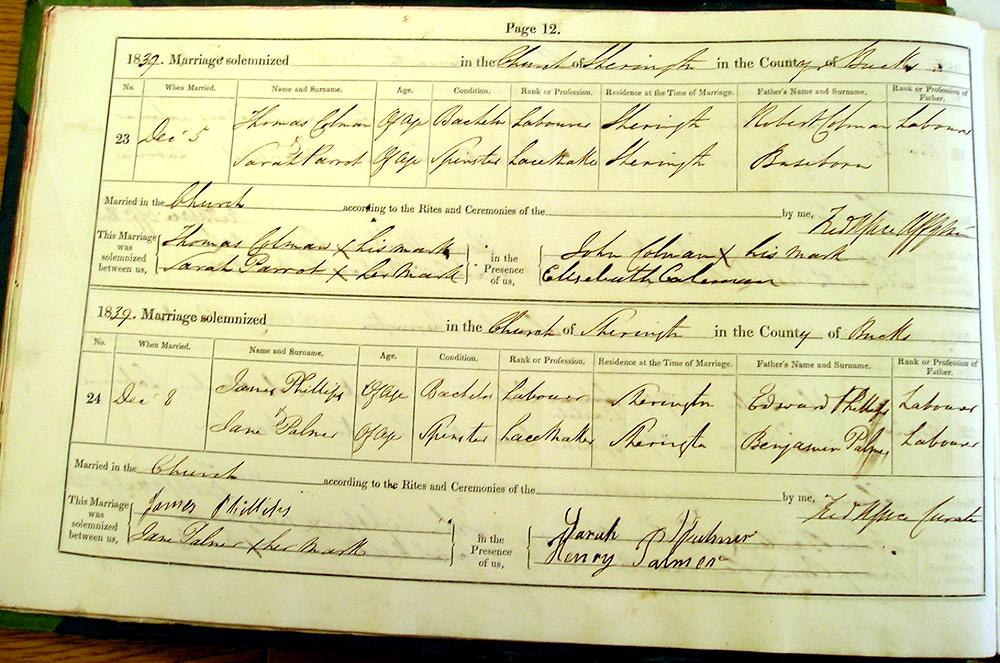 Page 12.
1839. Marriage solemnized in the Church of Sherington in the County of Bucks
No. When Married. Name and Surname. Age. Condition. Rank or Profession. Residence at the Time of Marriage. Father's Name and Surname. Rank or Profession of Father.
23 Dec 5 Thomas Colman Of Age Bachelor Labourer Sherington Robert Colman Labourer
Sarah Parrot Of Age Spinster Lace Maker Sherington Baseborn
Married in the Church according to the Rites and Ceremonies of the by me,
This Marriage was solemnized between us, Thomas Colman X his mark in the Presence of us, John Colman X his mark
Sarah Parrot X her mark Elizabeth Coleman
1839. Marriage solemnized in the Church of Sherington in the County of Bucks
No. When Married. Name and Surname. Age. Condition. Rank or Profession. Residence at the Time of Marriage. Father's Name and Surname. Rank or Profession of Father.
24 Dec 8 James Phillips Of Age Bachelor Labourer Sherington Edward Phillips Labourer
Jane Palmer Of Age Spinster Lace Maker Sherington Benjamin Palmer Labourer
Married in the Church according to the Rites and Ceremonies of the by me, Curate
This Marriage was solemnized between us, James Phillips in the Presence of us, Sarah
Jane Palmer X her mark Henry Palmer